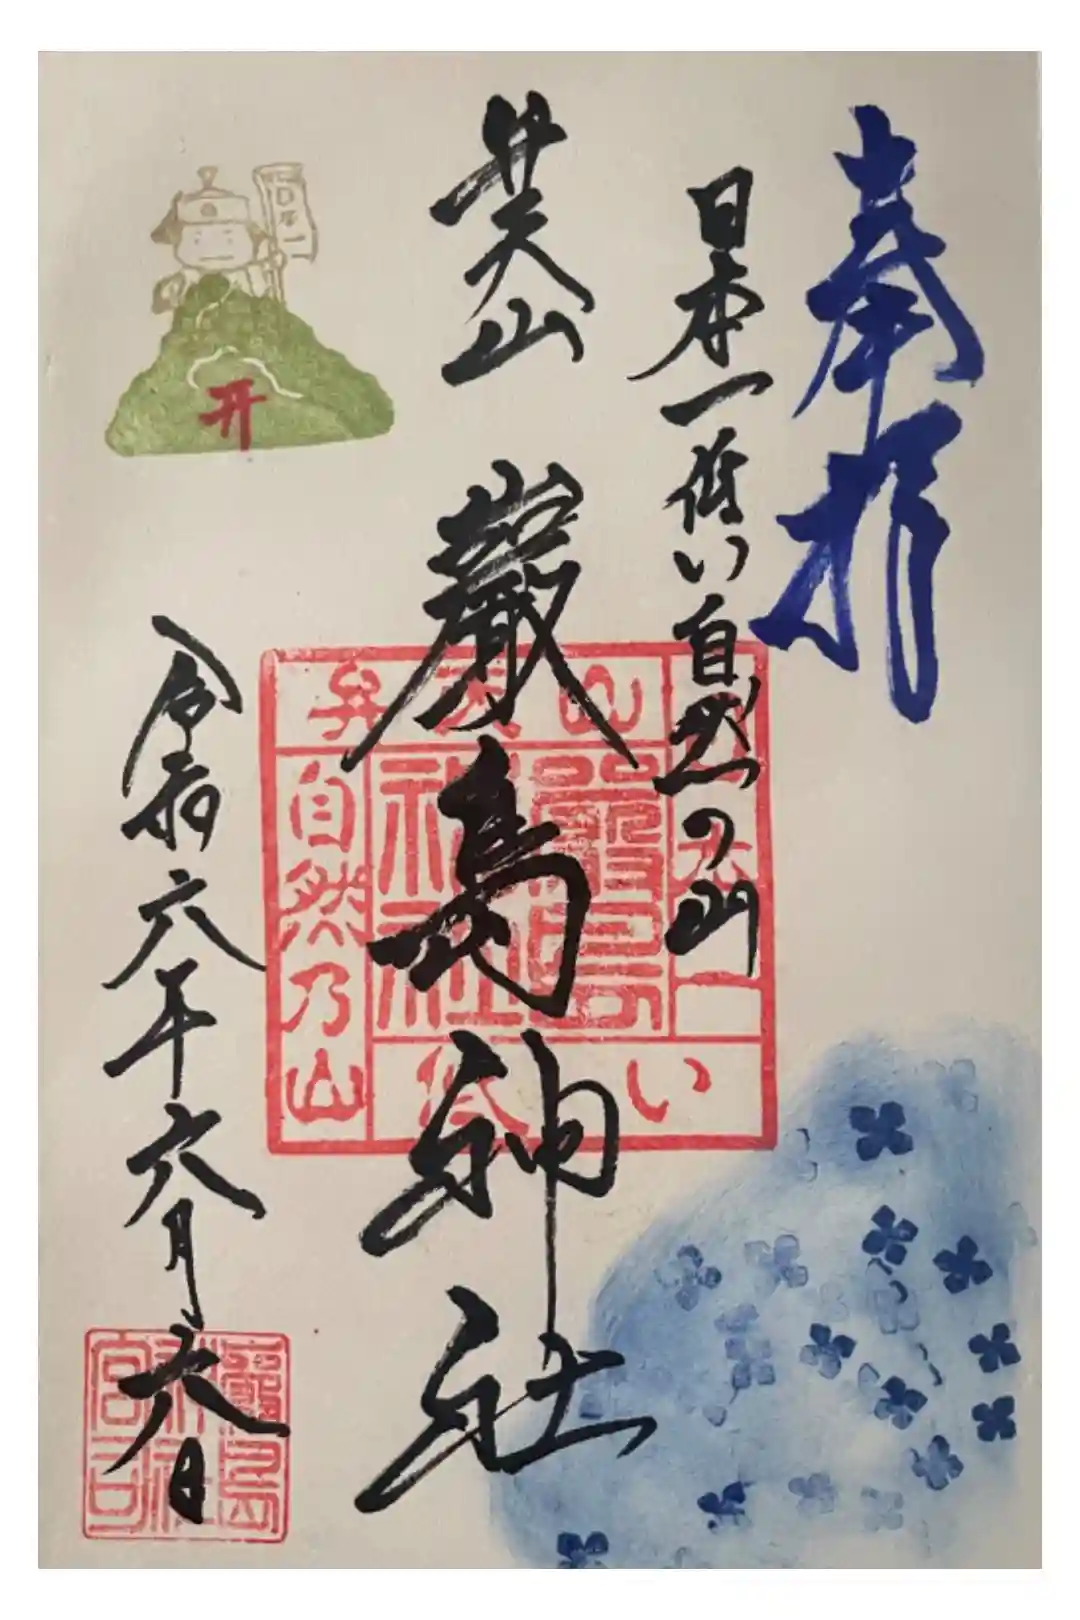 奉拝
日本一低い自然の山
弁天山
嚴島神社
令和六年六月六日
弁天山
日本一
低い
自然乃山
嚴島
神社
嚴島
神社
宮司
日本一